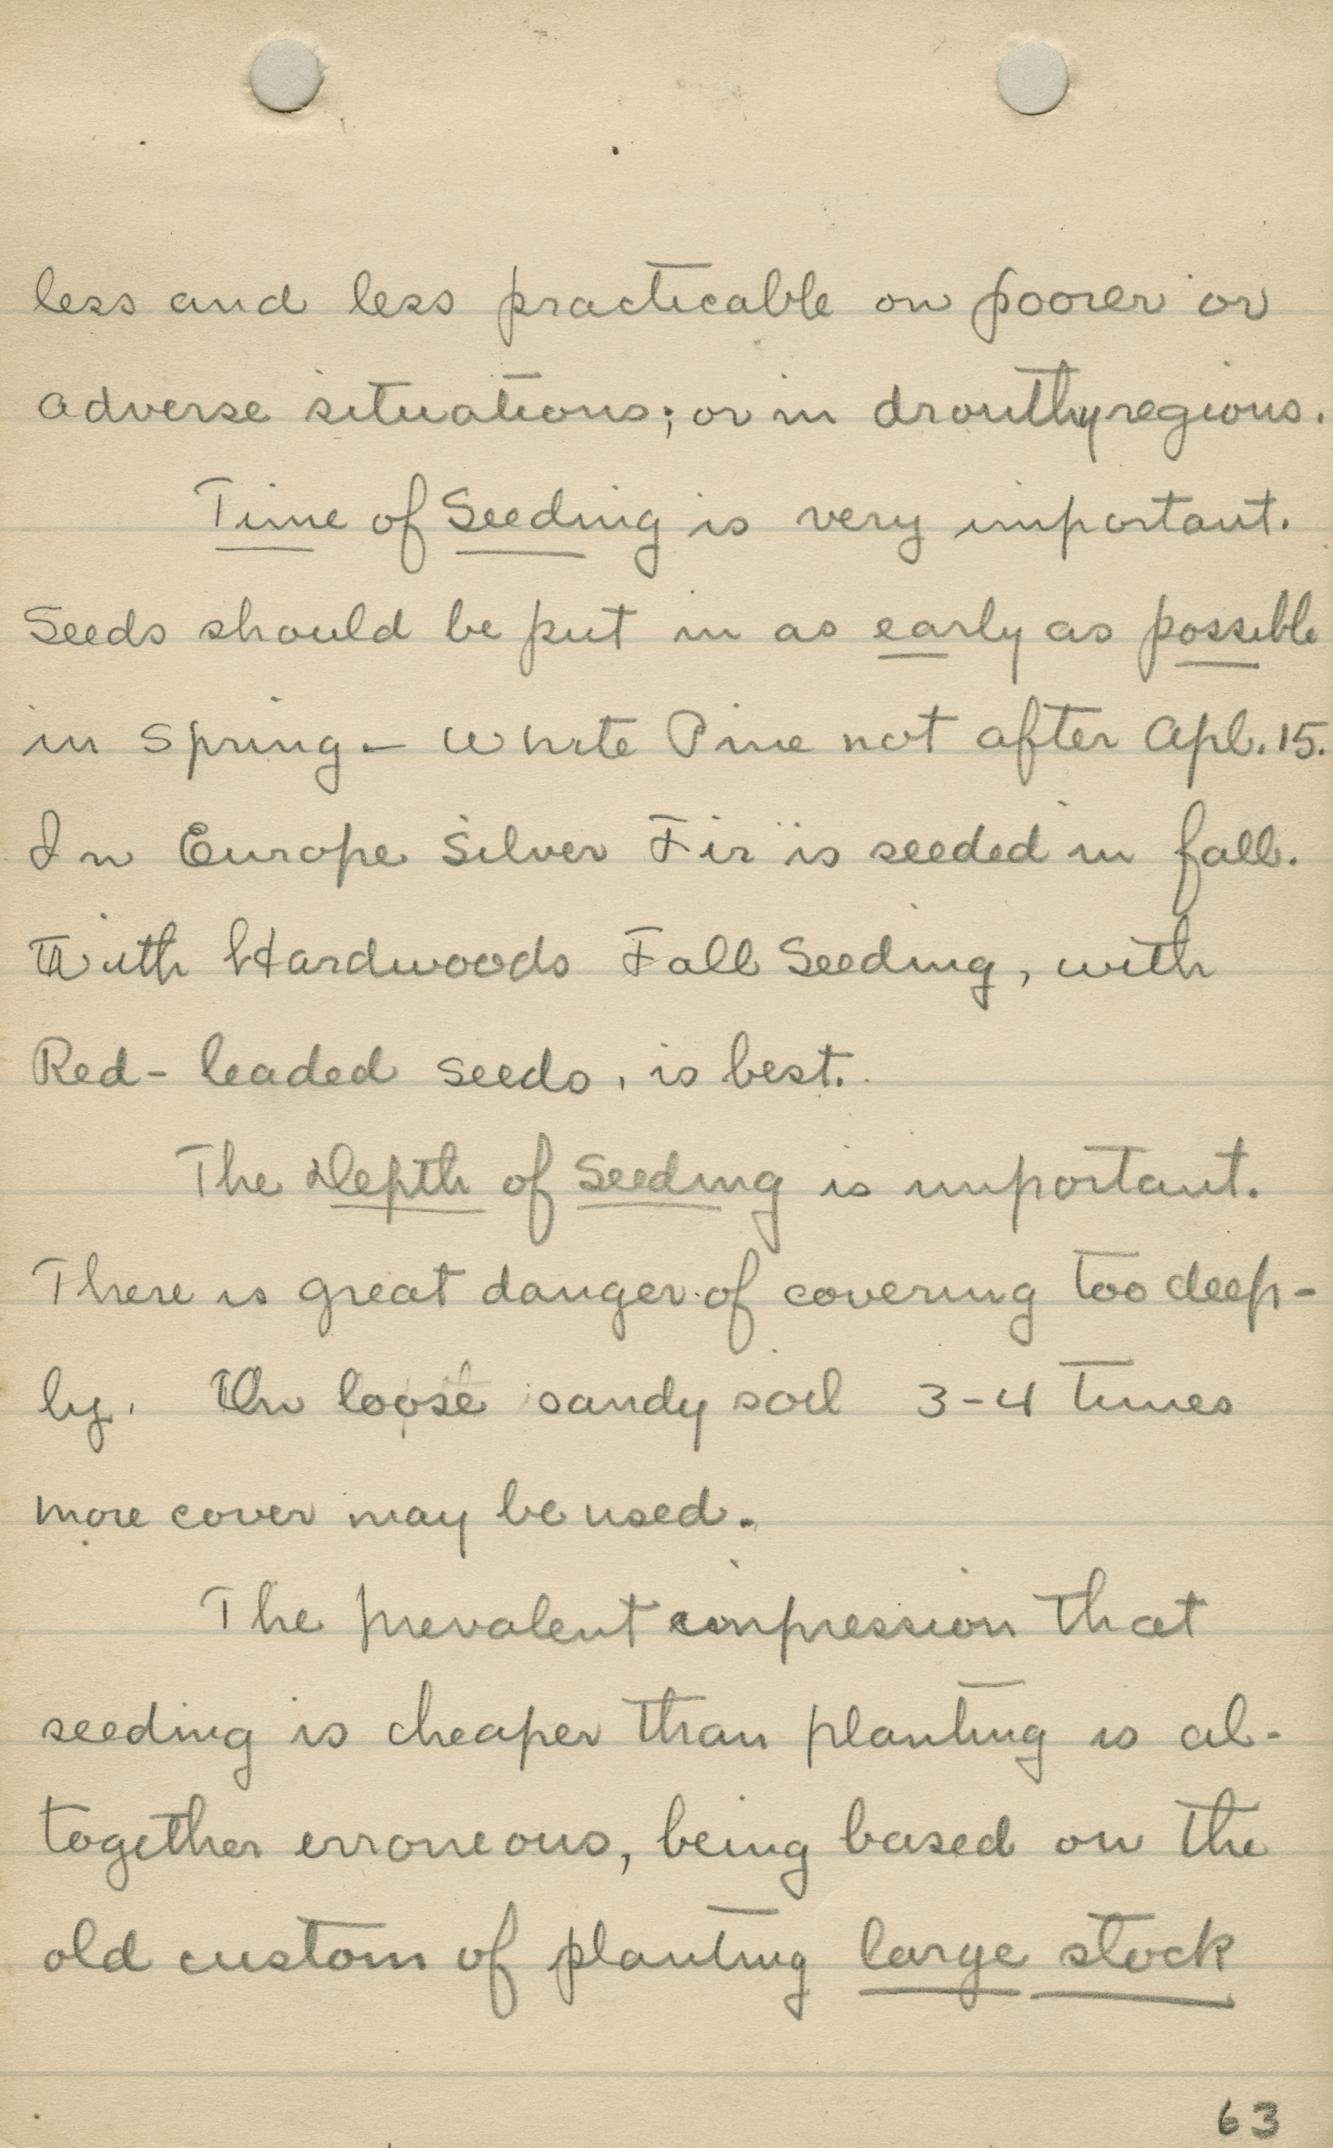 less and less practicable on poorer or
adverse situations; or in drouthy regions.
Time of Seeding is very important.
Seeds should be put in as early as possible
in Spring - White Pine not after Apl. 15.
In Europe Silver Fir is seeded in fall.
With Hardwoods Fall Seeding, with
Red-leaded seeds, is best.
The Depth of Seeding is important.
There is great danger of covering too deep-
ly. On loose sandy soil 3-4 times
more cover may be used.
The prevalent impression that
seeding is cheaper than planting is al-
together erroneous, being based on the
old custom of planting large stock
63